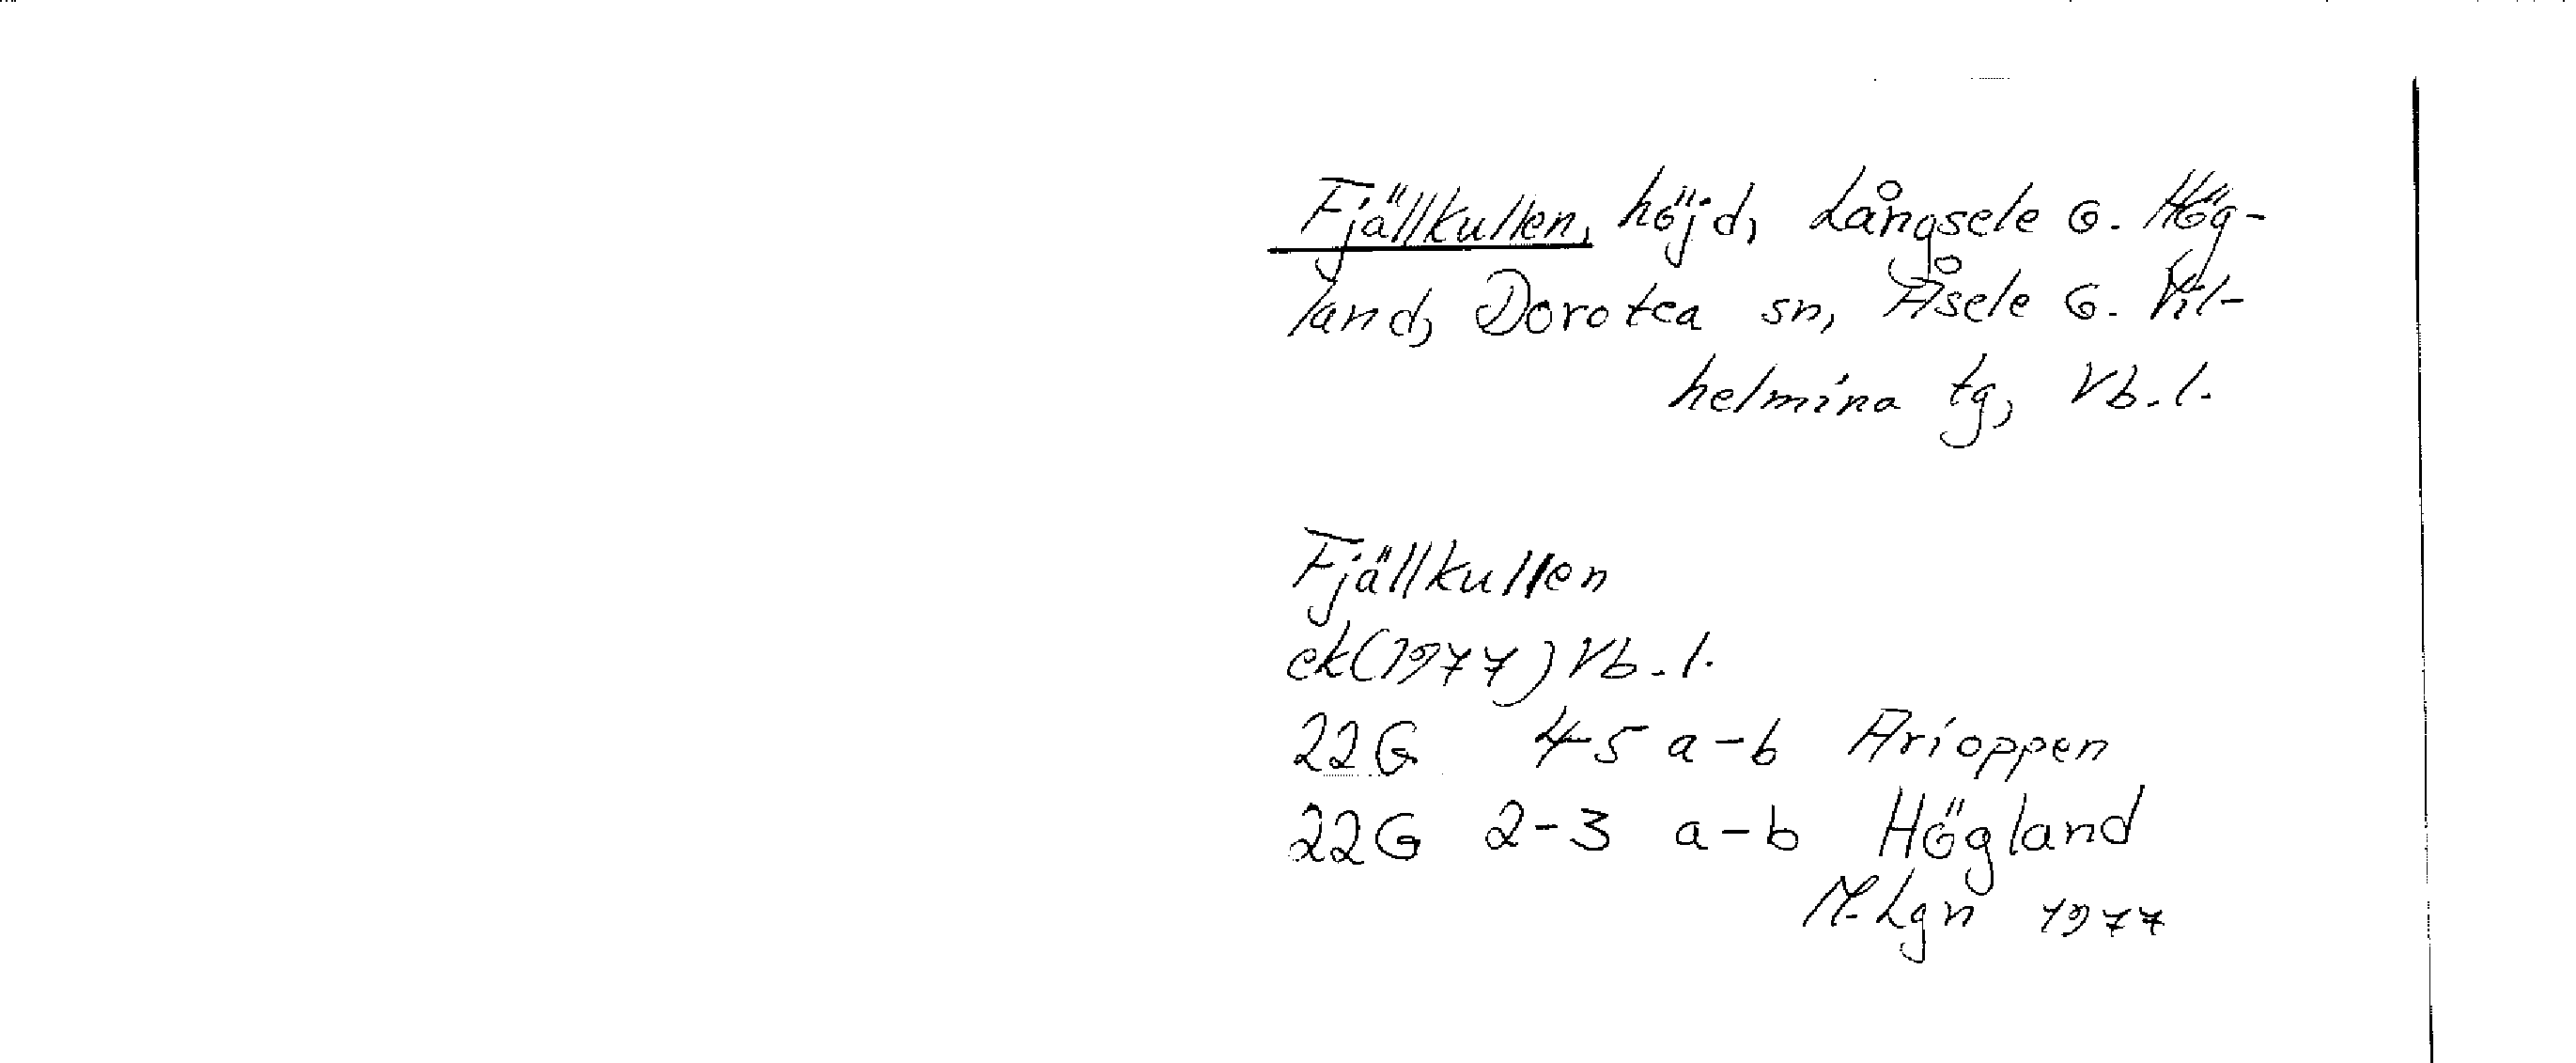 Fjällkullen, höjd, Långsele o. Hög-
land, Dorotea sn, Åsele o. Vil-
helmina tg, Vb.l.
Fjällkullen
ek(1977) Vb.l.
22G 45 a-b Arioppen
22G 2-3 a-b Högland
M.Lgn 1977